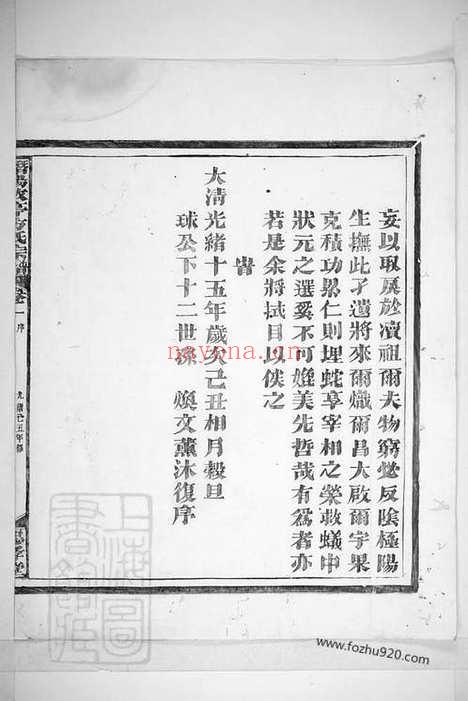 妄以取戾於瀆祖爾夫物窮必反陰極陽
生撫此孑遺將來爾熾爾昌大啟爾宇果
克積功累仁則埋蛇享宰相之榮救蟻中
狀元之選奚不可媲美先哲哉有為者亦
若是余將拭目以俟之
旹
大清光緒十五年歲次己丑相月穀旦
球公下十二世孫 煥文薰沐復序
氏宗譜 卷一 序
光緒己丑年修
上海圖書館藏
nayona.cn
www.fozhu920.com